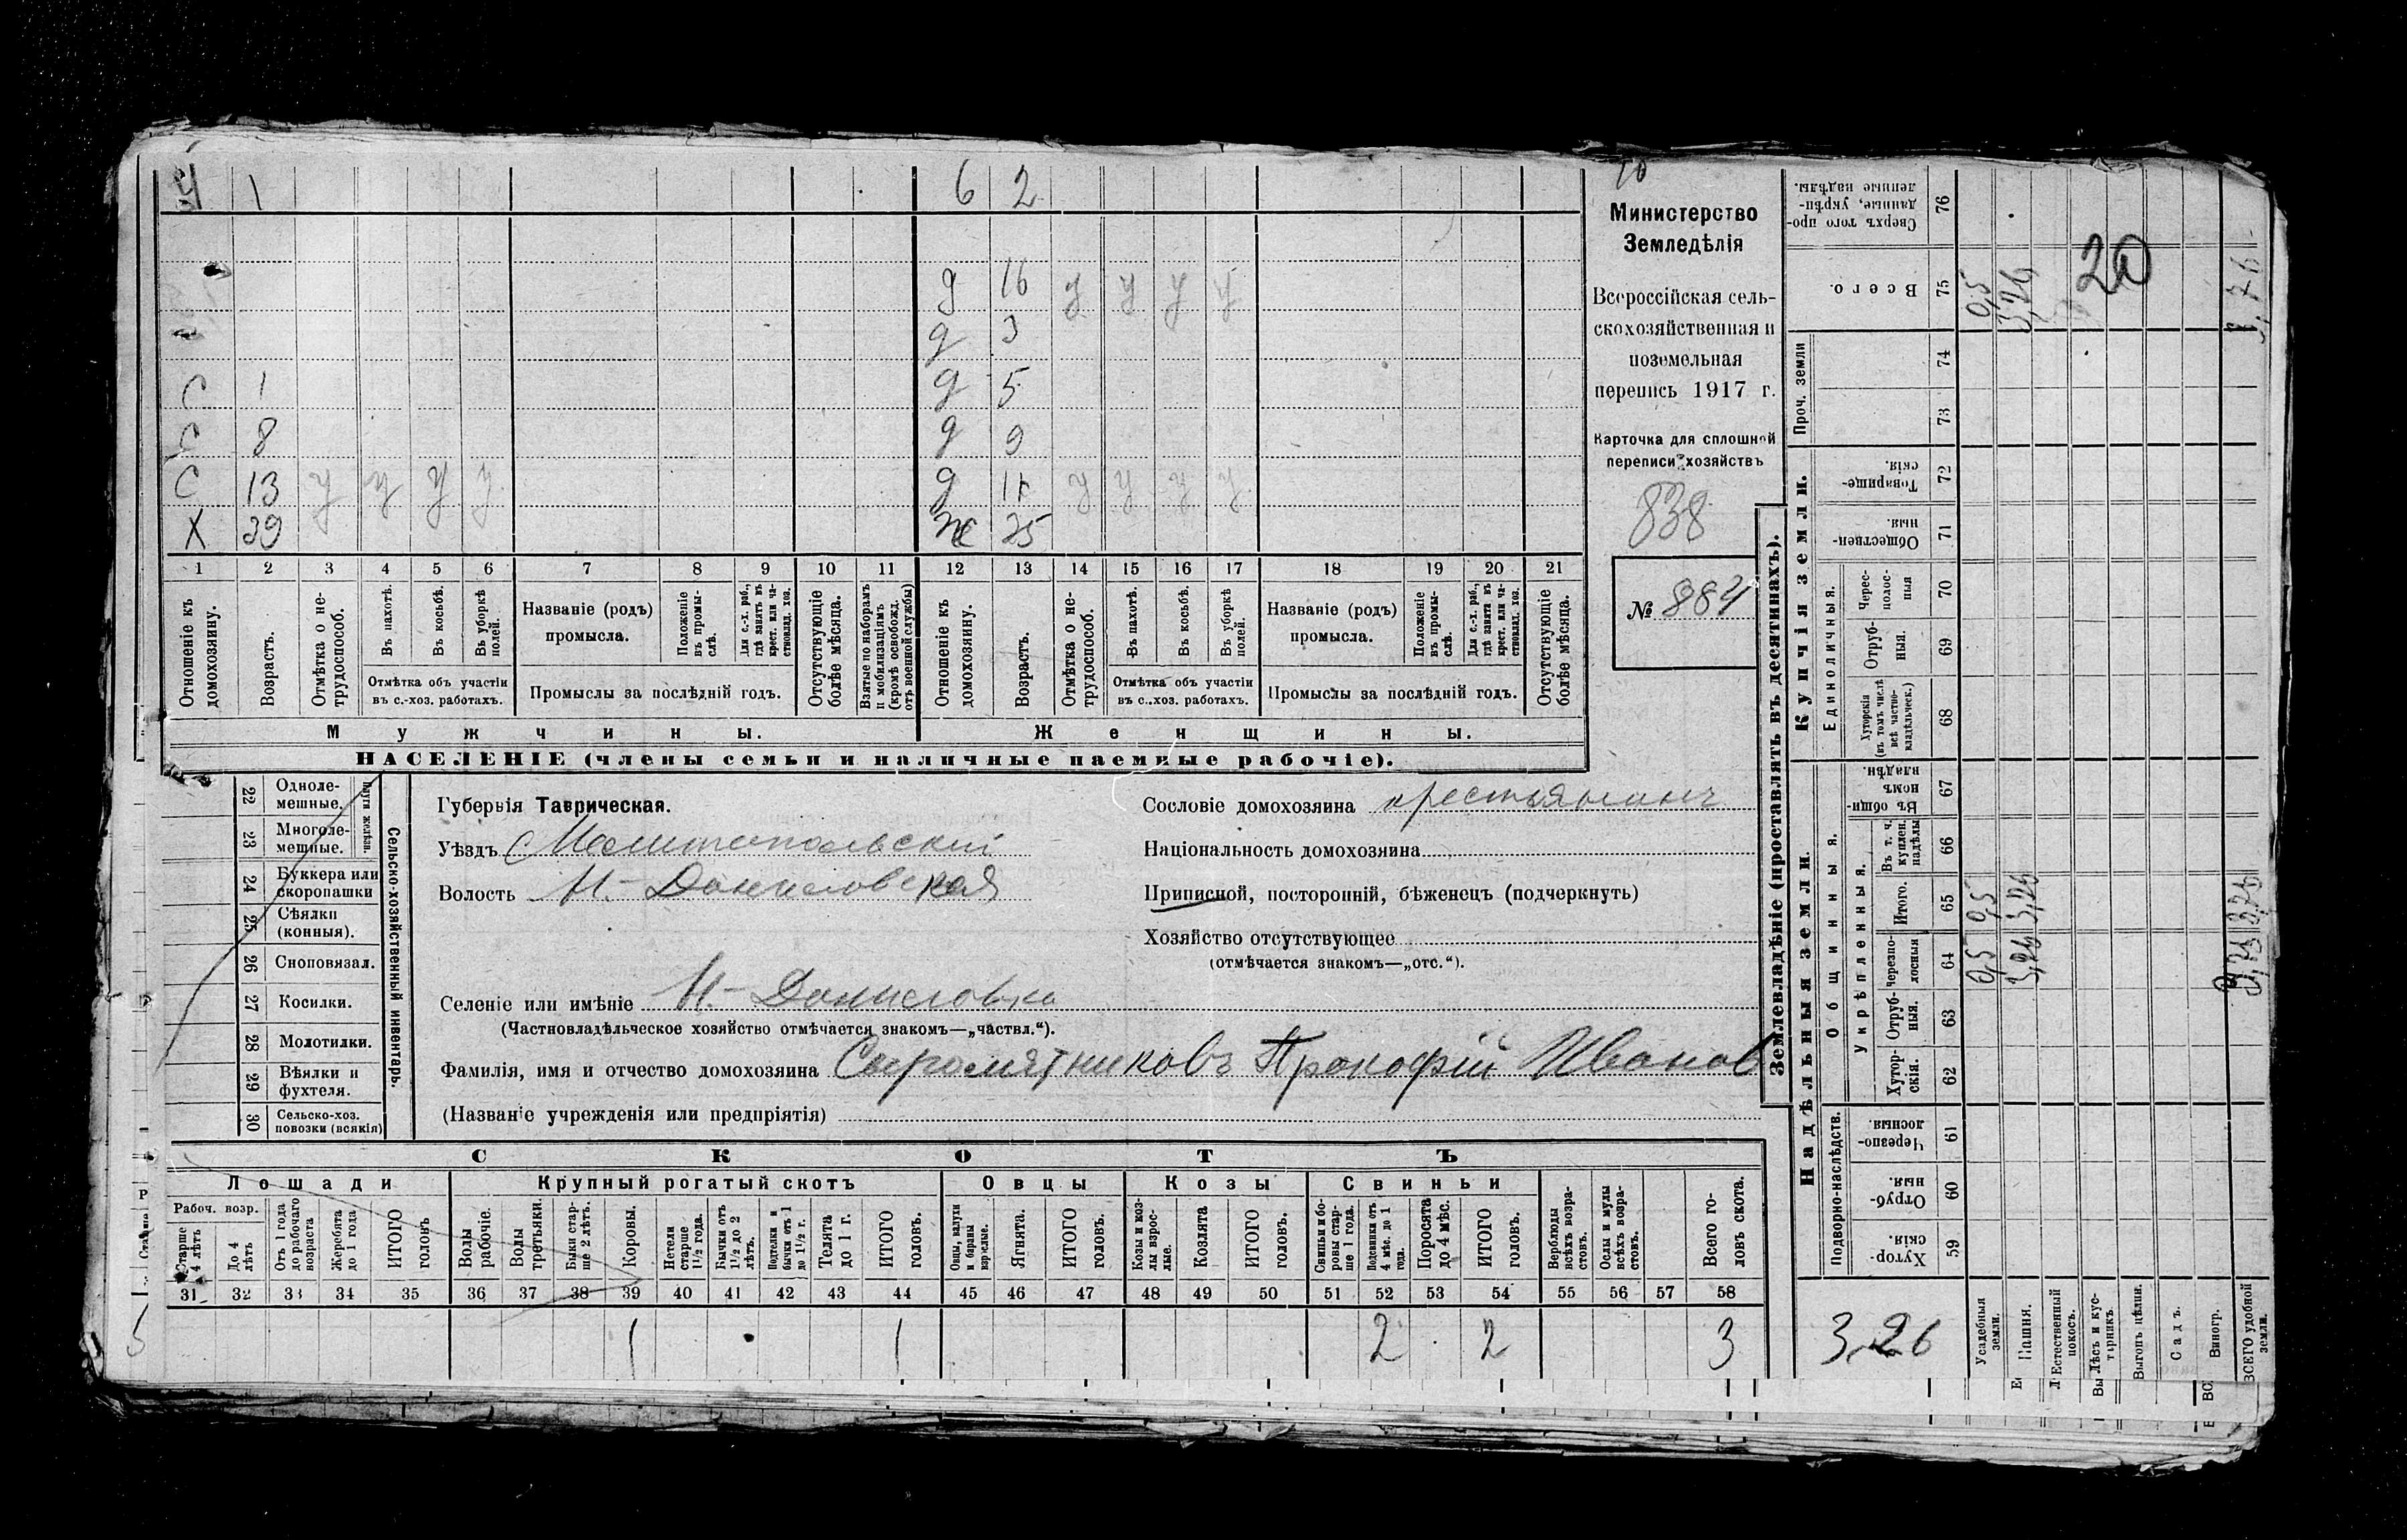 Ч 1 6 2
д 16 у у у у
д 3
С 1 д 5
С 8 д 9
С 13 у у у у д 11 у у у у
Х 39 ж 35
1 2 3 4 5 6 7 8 9 10 11 12 13 14 15 16 17 18 19 20 21
Отношеніе къ домохозяину.
Возрастъ.
Отмѣтка о не-
трудоспособ.
Въ пахотѣ.
Въ косьбѣ.
Въ уборкѣ
полей.
Отмѣтка объ участіи
въ с.-хоз. работахъ.
Названіе (родъ)
промысла.
Положеніе
въ промы-
слѣ.
Для с.-х. раб.,
гдѣ занятъ въ
крест. или ча-
стновлад. хоз.
Промыслы за послѣдній годъ.
Отсутствующіе
болѣе мѣсяца.
Взятые по наборамъ
и мобилизаціямъ
(кромѣ освобожд.
отъ военной службы)
Отношеніе къ
домохозяину.
Возрастъ.
Отмѣтка о не-
трудоспособ.
Въ пахотѣ.
Въ косьбѣ.
Въ уборкѣ
полей.
Отмѣтка объ участіи
въ с.-хоз. работахъ.
Названіе (родъ)
промысла.
Положеніе
въ промы-
слѣ.
Для с.-х. раб.,
гдѣ занята въ
крест. или ча-
стновлад. хоз.
Промыслы за послѣдній годъ.
Отсутствующіе
болѣе мѣсяца.
Мужчины.
Женщины.
НАСЕЛЕНІЕ (члены семьи и наличные наемные рабочіе).
Министерство
Земледѣлія
Всероссійская сель-
скохозяйственная и
поземельная
перепись 1917 г.
Карточка для сплошной
переписи хозяйствъ
838
№ 884
22 Одноле-
мешные.
23 Многоле-
мешные.
Плуги желѣзн.
24 Буккера или
скоропашки
25 Сѣялки
(конныя).
26 Сноповязал.
27 Косилки.
28 Молотилки.
29 Вѣялки и
фухтеля.
30 Сельско-хоз.
повозки (всякія)
Сельско-хозяйственный инвентарь.
Губернія Таврическая.
Уѣздъ Мелитопольскій
Волость Н-Даниловская
Селеніе или имѣніе Н-Даниловка
(Частновладѣльческое хозяйство отмѣчается знакомъ—„частвл.“).
Фамилія, имя и отчество домохозяина Сыромятниковъ Прокофій Иванов
(Названіе учрежденія или предпріятія)
Сословіе домохозяина крестьянинъ
Національность домохозяина
Приписной, посторонній, бѣженецъ (подчеркнуть)
Хозяйство отсутствующее
(отмѣчается знакомъ—„отс.“).
СКОТЪ
Лошади Крупный рогатый скотъ Овцы Козы Свиньи
Рабоч. возр.
Старше
4 лѣтъ
До 4
лѣтъ
Отъ 1 года
до рабочаго
возраста
Жеребята
до 1 года
ИТОГО
головъ
Волы
рабочіе.
Волы
третьяки.
Быки стар-
ше 2 лѣтъ.
Коровы.
Нетели
старше
1½ года.
Бычки отъ
1½ до 2
лѣтъ.
Подтелки и
бычки отъ 1
до 1½ г.
Телята
до 1 г.
ИТОГО
головъ.
Овцы, валухи
и бараны
взрослые.
Ягнята.
ИТОГО
головъ.
Козы и коз-
лы взрос-
лые.
Козлята
ИТОГО
головъ.
Свиньи и бо-
ровы стар-
ше 1 года.
Подсвинки отъ
4 мѣс. до 1
года.
Поросята
до 4 мѣс.
ИТОГО
головъ.
Верблюды
всѣхъ возра-
стовъ.
Ослы и мулы
всѣхъ возра-
стовъ.
Всего го-
ловъ скота.
31 32 33 34 35 36 37 38 39 40 41 42 43 44 45 46 47 48 49 50 51 52 53 54 55 56 57 58
1 1 2 2 3
Землевладѣніе (проставлять въ десятинахъ).
Купчія земли.
Надѣльныя земли.
Сверхъ того про-
данные, укрѣп-
ленные надѣлы.
76
Всего.
75
0,5
3,26
20
3,76
Проч. земли
74
73
Товарище-
скія.
72
Обществен-
ныя.
71
Единоличныя.
Черес-
полос-
ныя
70
Отруб-
ныя.
69
Хуторскія
(въ томъ числѣ
всѣ частно-
владѣльческ.)
68
Общинныя.
Въ общи-
номъ
владѣн.
67
Укрѣпленныя.
Въ т. ч.
куплен.
надѣлы
66
Итого.
65
0,5
3,26
3,76
черезпо-
лосныя
64
0,5
3,26
3,76
Отруб-
ныя.
63
Хутор-
скія.
62
Подворно-наслѣдств.
Черезпо-
лосныя
61
Отруб-
ныя.
60
Хутор-
скія.
59
3,26
Усадебныя
земли.
Пашня.
Естественный
покосъ.
Лѣсъ и кус-
тарникъ.
Выгонъ цѣлин.
Садъ.
Виногр.
ВСЕГО удобной
земли.